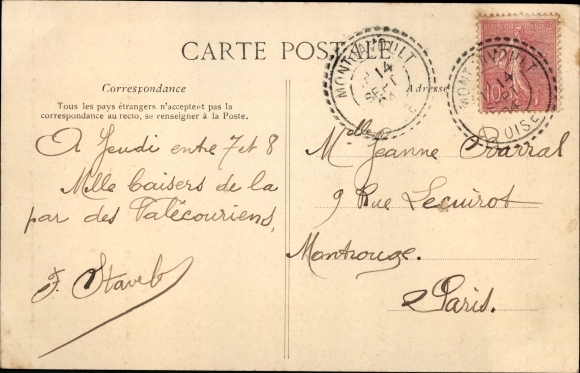 CARTE POSTALE
Correspondance
Tous les pays étrangers n'acceptent pas la
correspondance au recto, se renseigner à la Poste.
A Jeudi entre 7 et 8
Mille baisers de la
par des Falécouriens,
F. Stavelo
Adresse
Mdlle Jeanne Barral
9 Rue Lecuirot
Montrouge.
Paris.
MONTJAVOULT
14
SEPT
OISE
MONTJAVOULT
14
OISE
10